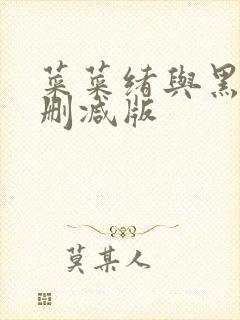 菜菜绪與黑
刪减版
莫某人